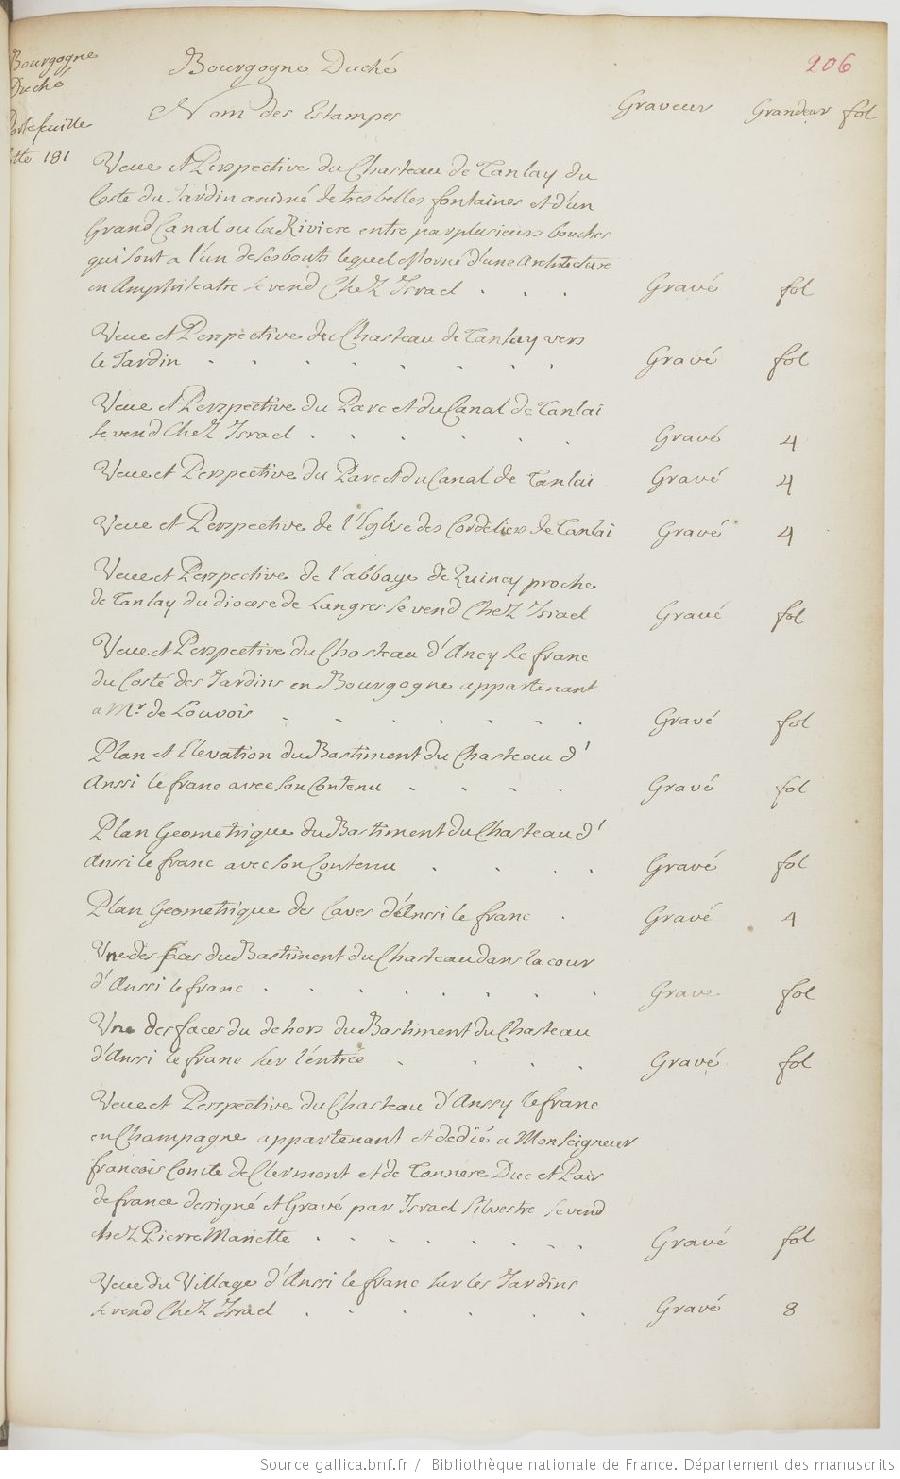 Bourgogne
Duché
Portefeuille
181
Bourgogne Duché
206
Nom des Estampes
Graveur
Grandeur fol
Veue et Perspective du Chasteau de Tanlay du
Costé du Jardin de tres belles fontaines et d'un
Grand Canal ou la Riviere entre par plusieurs bouches
qui sont a l'un de ses bouts lequel est orné d'une Architecture
en Amphiteatre se vend Chez Israel . . . Gravé fol
Veue et Perspective du Chasteau de Tanlay vers
le Jardin . . . . . . . Gravé fol
Veue et Perspective du Parc et du Canal de Tanlai
se vend Chez Israel . . . . . Gravé 4
Veue et Perspective du Parc et du Canal de Tanlai Gravé 4
Veue et Perspective de l'Eglise des Cordeliers de Tanlai Gravé 4
Veue et Perspective de l'abbaye de Quincy proche
de Tanlay du diocese de Langres se vend Chez Israel Gravé fol
Veue et Perspective du Chasteau d'Ancy le franc
du Costé des Jardins en Bourgogne appartenant
a Mr de Louvois . . . . . . . Gravé fol
Plan et Elevation du Bastiment du Chasteau d'
Anssi le franc avec son Contenu . . . . Gravé fol
Plan Geometrique du Bastiment du Chasteau d'
Anssi le franc avec son Contenu . . . . Gravé fol
Plan Geometrique des Caves d'Anssi le franc . Gravé 4
Une des faces du Bastiment du Chasteau dans la cour
d'Anssi le franc . . . . . . . . Gravé fol
Une des faces du dehors du Bastiment du Chasteau
d'Anssi le franc sur l'entrée . . . . Gravé fol
Veue et Perspective du Chasteau d'Anssy le franc
en Champagne appartenant et dedié a Monseigneur
francois Comte de Clermont et de Tonnere Duc et Pair
de france designé et Gravé par Israel Silvestre se vend
chez Pierre Mariette . . . . . . . . Gravé fol
Veue du Village d'Anssi le franc sur les Jardins
se vend Chez Israel . . . . . Gravé 8
Source gallica.bnf.fr / Bibliothèque nationale de France. Département des manuscrits